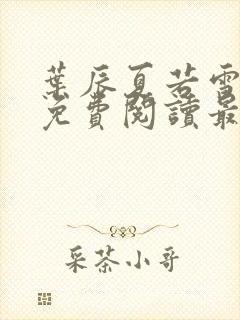 葉辰夏若雪
免費閱讀最
采茶小哥